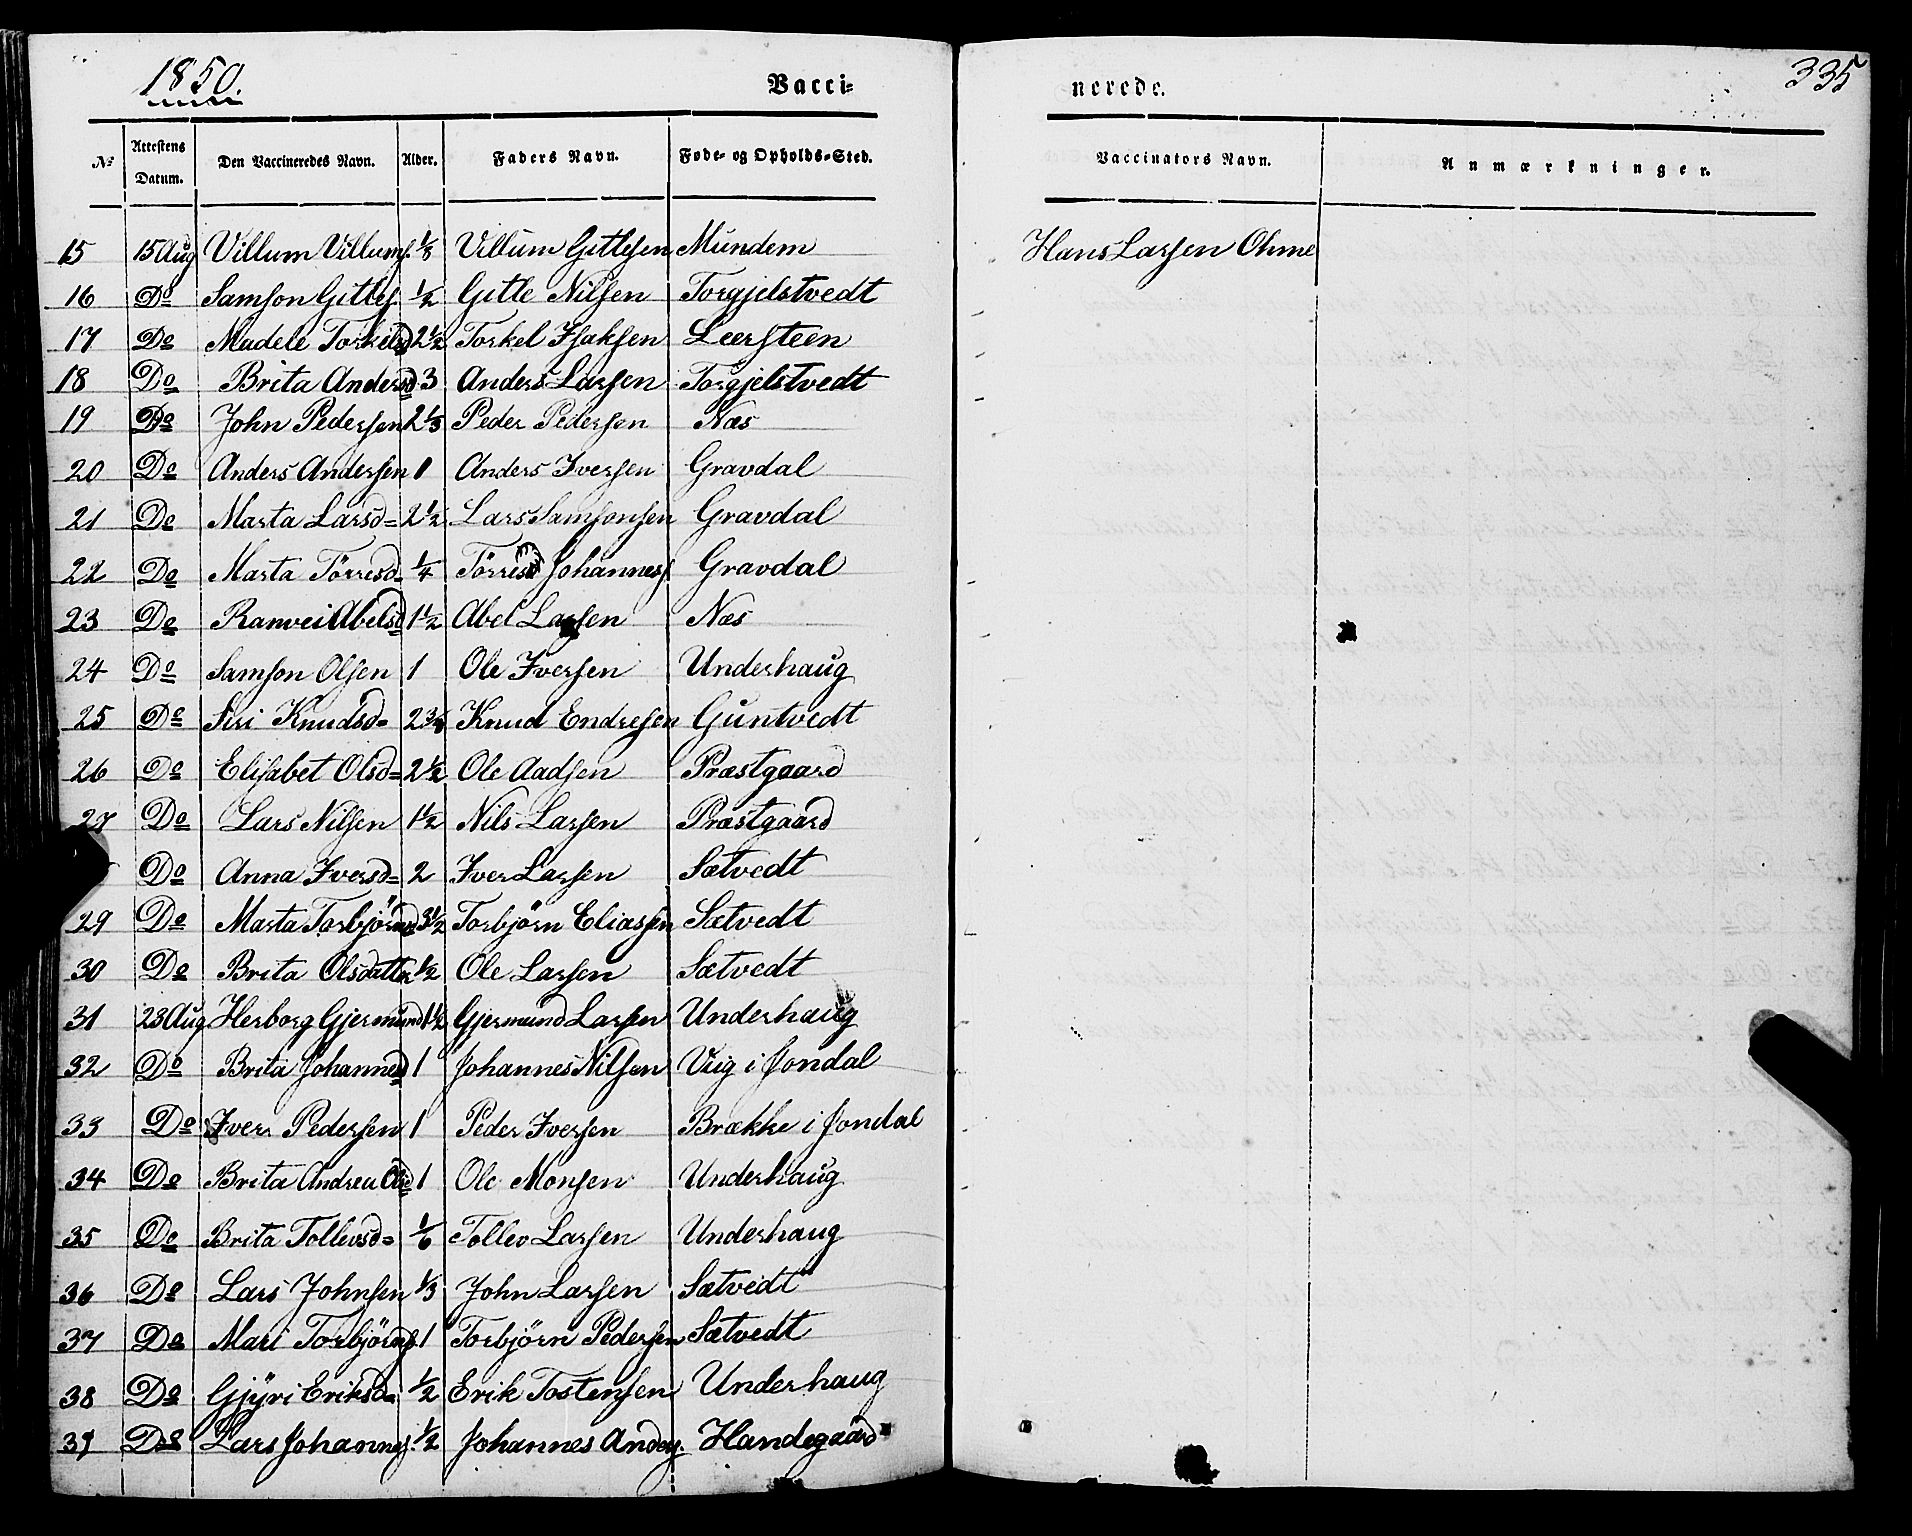 1850. Vaccinerede. 335
No Attestens Datum. Den Vaccineredes Navn. Alder. Faders Navn. Føde- og Opholds-Sted. Vaccinators Navn. Anmærkninger.
15 15 Aug Villum Villumſ. 1/8 Villum Gitleſen Mundem Hans Larſen Ohme
16 Do Samſon Gitleſ. 1/2 Gitle Nilſen Torgjelstvedt
17 Do Madele Torkelsd 2 1/2 Torkel Iſakſen Leerſteen
18 Do Brita Andersd 3 Anders Larſen Torgjelstvedt
19 Do John Pederſen 2 1/3 Peder Pederſen Næs
20 Do Anders Anderſen 1 Anders Iverſen Gravdal
21 Do Marta Larsd= 2 1/2 Lars Samſonſen Gravdal
22 Do Marta Törresd= 1/4 Törres Johannesſ Gravdal
23 Do Ranvei Abelsd 1 1/2 Abel Larſen Næs
24 Do Samſon Olſen 1 Ole Iverſen Underhaug
25 Do Siri Knudsd= 2 3/4 Knud Endreſen Guntvedt
26 Do Eliſabet Olsd= 2 1/2 Ole Aadſen Præstgaard
27 Do Lars Nilſen 1 1/2 Nils Larſen Præstgaard
Do Anna Iversd= 2 Iver Larſen Sætvedt
29 Do Marta Torbjörnsd 3 1/2 Torbjörn Eliasſen Sætvedt
30 Do Brita Olsdatter 1/2 Ole Larſen Sætvedt
31 23 Aug Herborg Gjermund 1 1/2 Gjermund Larſen Underhaug
32 Do Brita Johannesd 1 Johannes Nilſen Viig i Jondal
33 Do Iver Pederſen 1 Peder Iverſen Brække i Jondal
34 Do Brita Andrea Olsd 1 Ole Monſen Underhaug
35 Do Brita Tollevsd= 1/6 Tollev Larſen Underhaug
36 Do Lars Johnſen 1/3 John Larſen Sætvedt
37 Do Mari Torbjörnſ. 1 Torbjörn Pederſen Sætvedt
38 Do Gjÿri Eriksd= 1/2 Erik Tostenſen Underhaug
39 Do Lars Johannesſ. 1/2 Johannes Andersſ. Handegaard